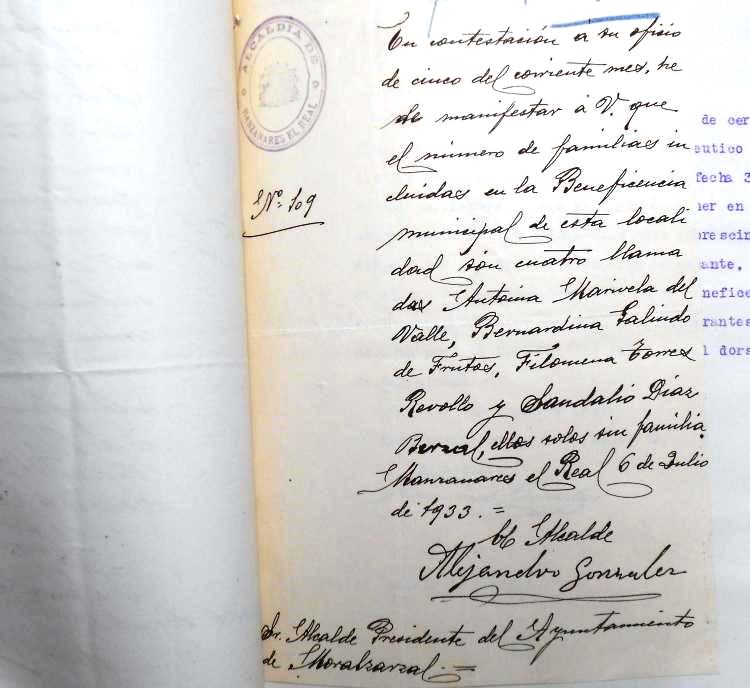 ALCALDIA DE
MANZANARES EL REAL
Nº 109
En contestación á su oficio
de cinco del corriente mes, he
de manifestar á V. que
el número de familias in
cluidas en la Beneficencia
municipal de esta locali
dad son cuatro llama
das Antoina Marivela del
Valle, Bernardina Galindo
de Frutos, Filomena Torres
Revollo y Sandalio Díaz
Bernal, ellos solos sin familia.
Manzanares el Real 6 de Julio
de 1933.=
El Alcalde
Alejandro Gonzalez
Sr. Alcalde Presidente del Ayuntamiento
de Moralzarzal.=
de cer
eutico
fecha 3
er en
prescin
ante,
nefice
rantes
l dors